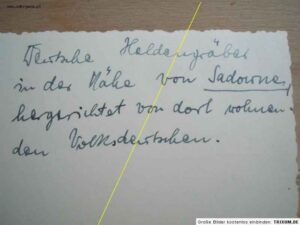 Deutsche Heldengräber
in der Nähe von Sadowne,
hergerichtet von dort wohnen-
den Volksdeutschen.
Große Bilder kostenlos einbinden: TRIXUM.DE